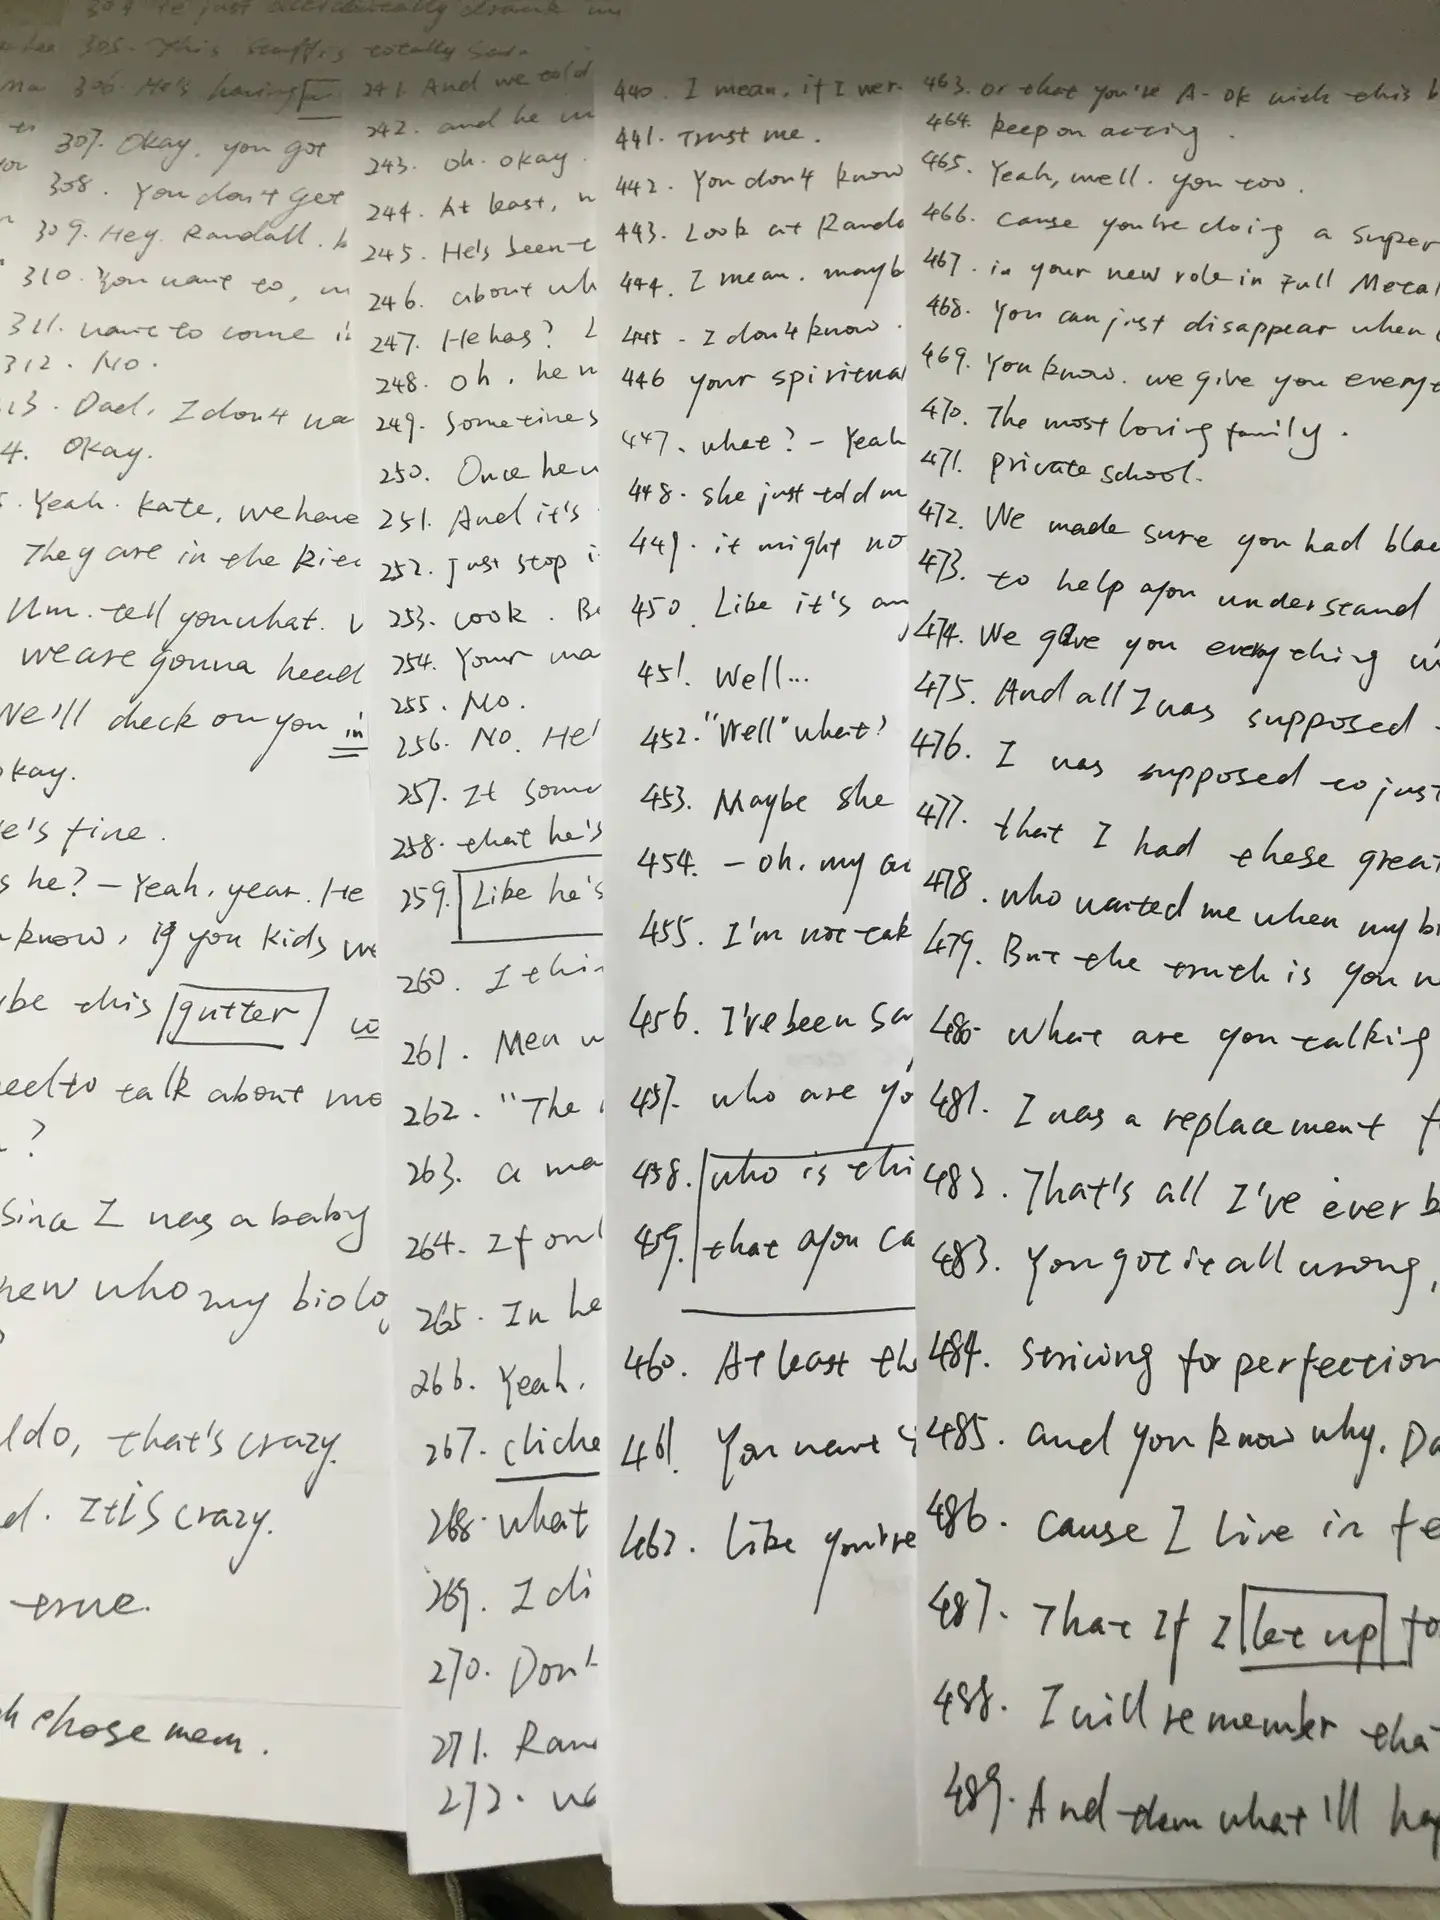 304. He just accidentally drank
305. This stuff's totally
306. He's having
307. Okay. you got
308. You don't get
309. Hey. Randall.
310. You want to,
311. want to come
312. No.
13. Dad, I don't
4. Okay.
Yeah. Kate, we have
They are in the
Um. tell you what.
we are gonna head
We'll check on you in
okay.
e's fine.
s he? - Yeah, year. He
know, if you kids
be this gutter
eed to talk about
?
Since I was a baby
new who my biolo
ldo, that's crazy.
d. It is crazy.
true.
chose mem.
241. And we told
242. and he
243. oh. okay
244. At least,
245. He's been
246. about wh
247. He has?
248. oh, he
249. Sometimes
250. Once he
251. And it's
252. just stop
253. Look.
254. Your ma
255. No.
256. No. He'
257. It some
258. that he's
259. Like he's
260. I thin
261. Men
262. "The
263. a ma
264. If onl
265. In he
266. Yeah.
267. cliche
268. what
269. I di
270. Don't
271. Ran
272.
440. I mean, if I wer
441. Trust me.
442. You don't know
443. Look at Randa
444. I mean. mayb
445. I don't know.
446 your spiritua
447. what? - Yeah
448. she just told m
449. it might no
450. Like it's an
451. Well...
452. "Well" what?
453. Maybe she
454. - oh, my
455. I'm not tak
456. I've been sa
457. who are yo
458. who is thi
459. that you ca
460. At least the
461. You want
462. Like you're
463. or that you're A-ok with this b
464. keep on acting.
465. Yeah, well. you too.
466. cause you're doing a super
467. in your new role in Full Metal
468. You can just disappear when
469. You know. we give you everyt
470. The most loving family.
471. private school.
472. We made sure you had blac
473. to help you understand
474. We gave you everything
475. And all I was supposed
476. I was supposed to just
477. that I had these great
478. who wanted me when my bi
479. But the truth is you
480. What are you talking
481. I was a replacement f
482. That's all I've ever b
483. You got it all wrong,
484. Striving for perfection
485. and you know why. Da
486. Cause I live in fe
487. That If I let up fo
488. I will remember tha
489. And then what'll hap